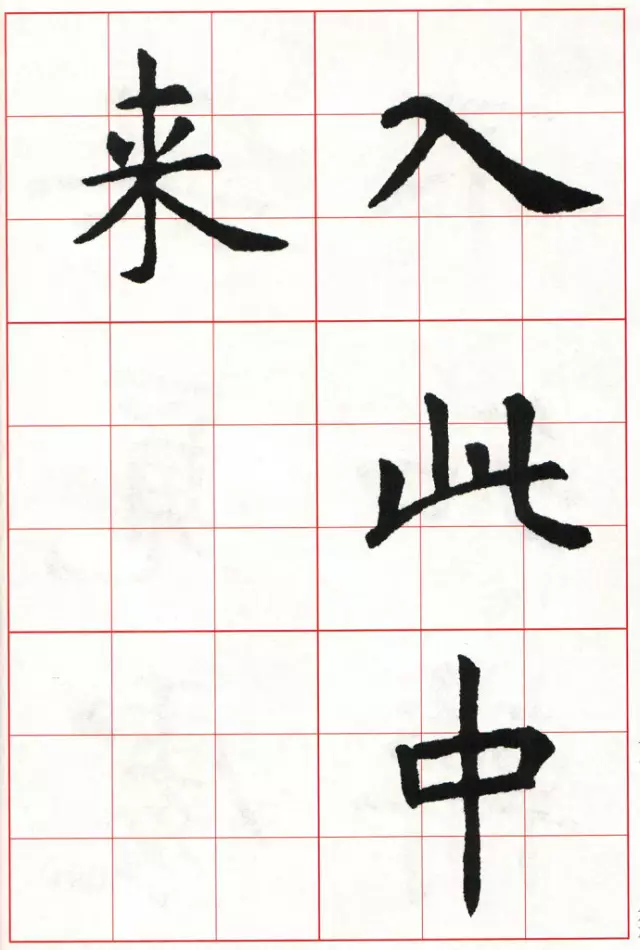 入此中
来